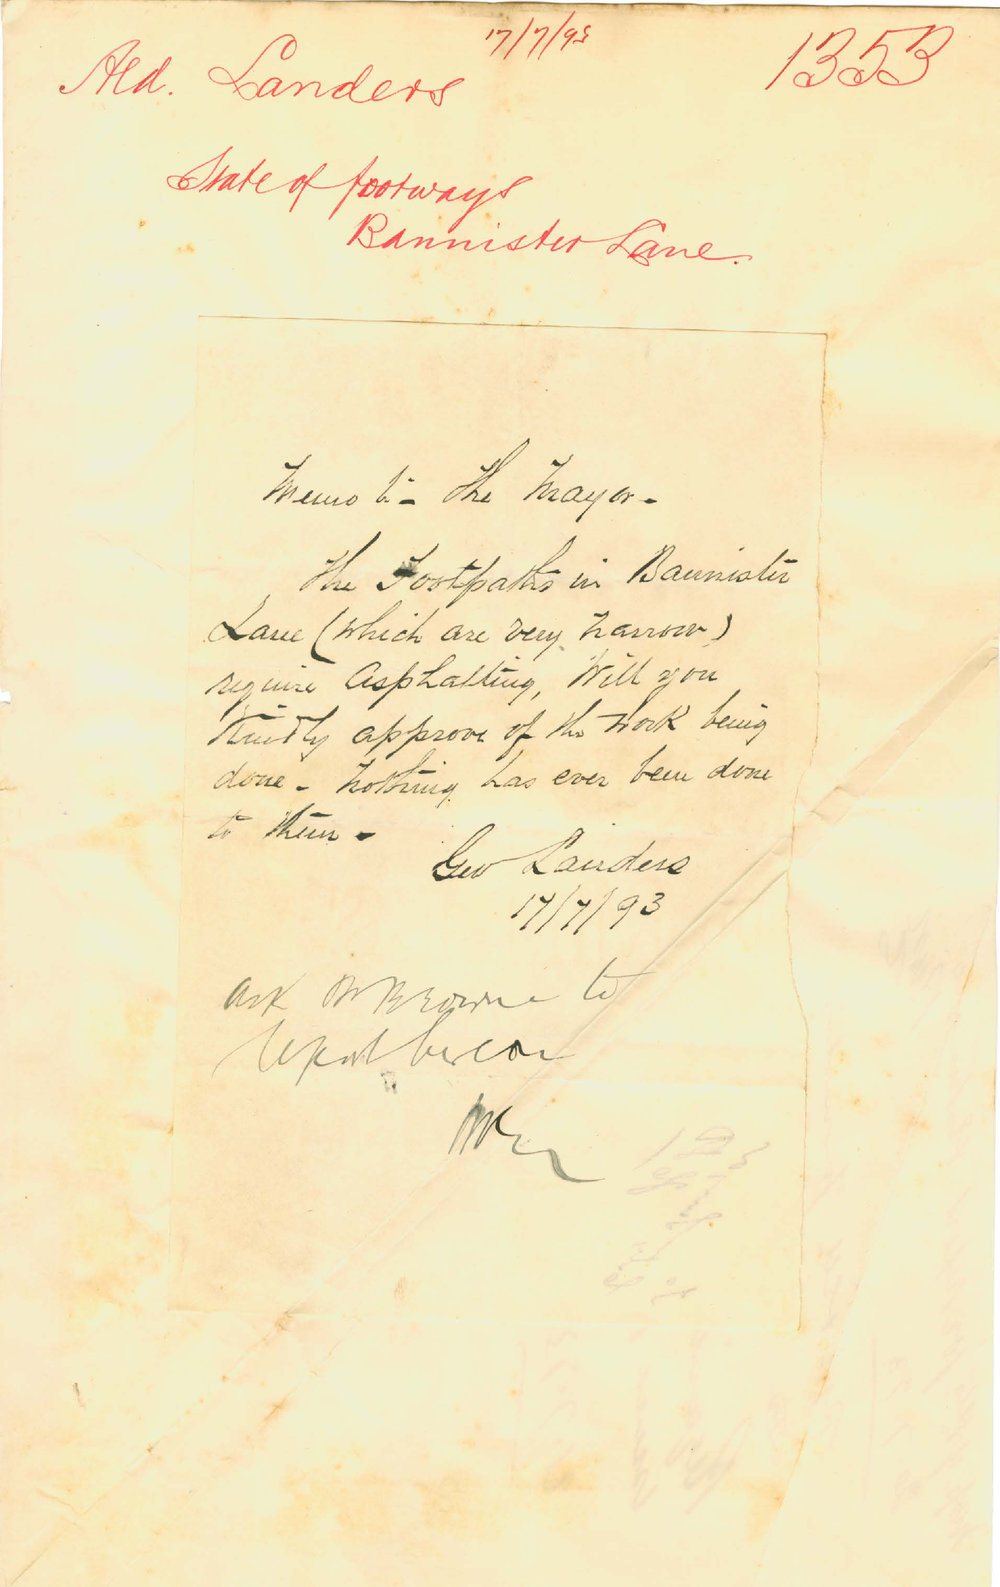 17/7/93
1353
Ald. Landers
State of footways
Bannister Lane.
Memo to - The Mayor -
The Footpaths in Bannister
Lane (which are very narrow)
require Asphalting, Will you
Kindly approve of the work being
done - Nothing has ever been done
to them -
Geo Landers
17/7/93
Ask Mr Browne to
report hereon